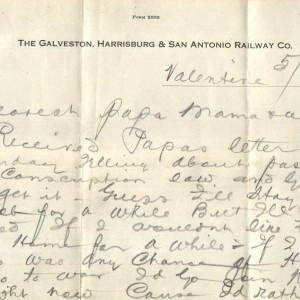 FORM 2002
THE GALVESTON, HARRISBURG & SAN ANTONIO RAILWAY CO.
Valentine 5/
Papa Mama &
Received Papas letter
telling about
Conscription law and
get it - Guess I'll stay
for a while But I'll
If I wouldnt like
Home for a while - If I
was any chance of
to war I'd Go
right now Cause I'd